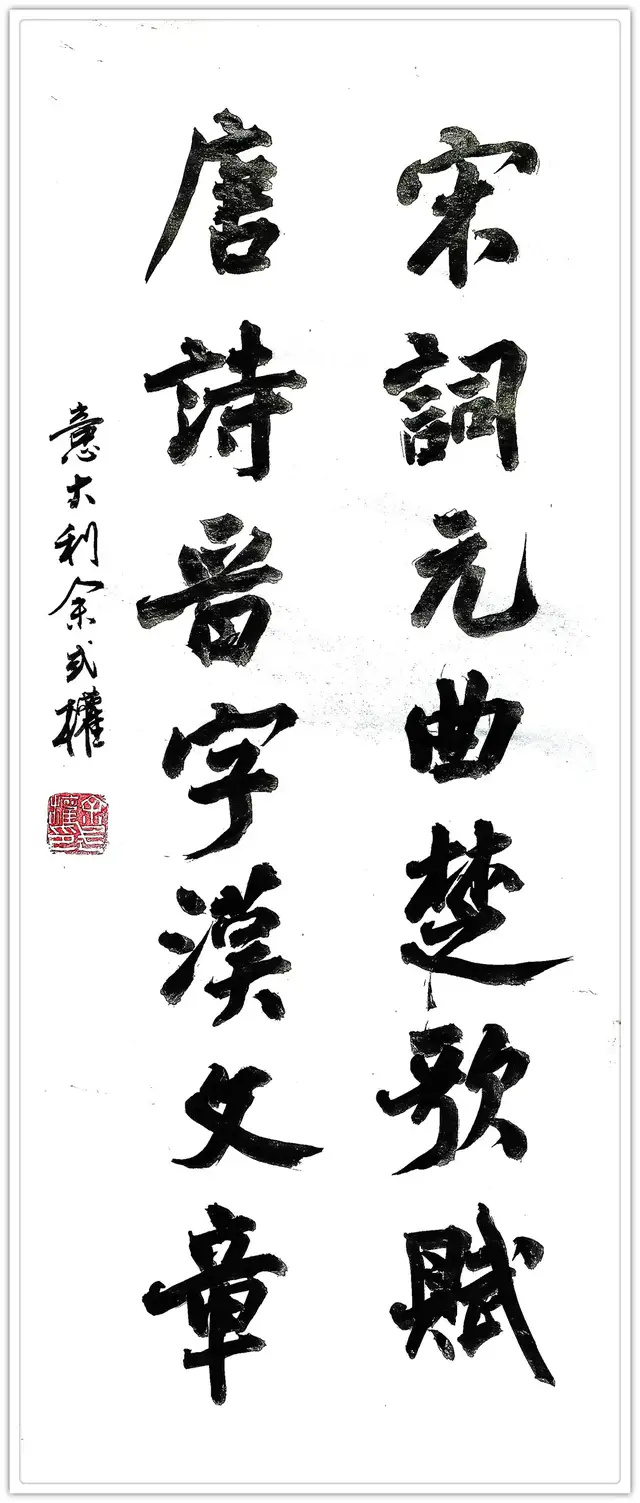 宋詞元曲楚歌賦
唐詩晋字漢文章
意大利余式權